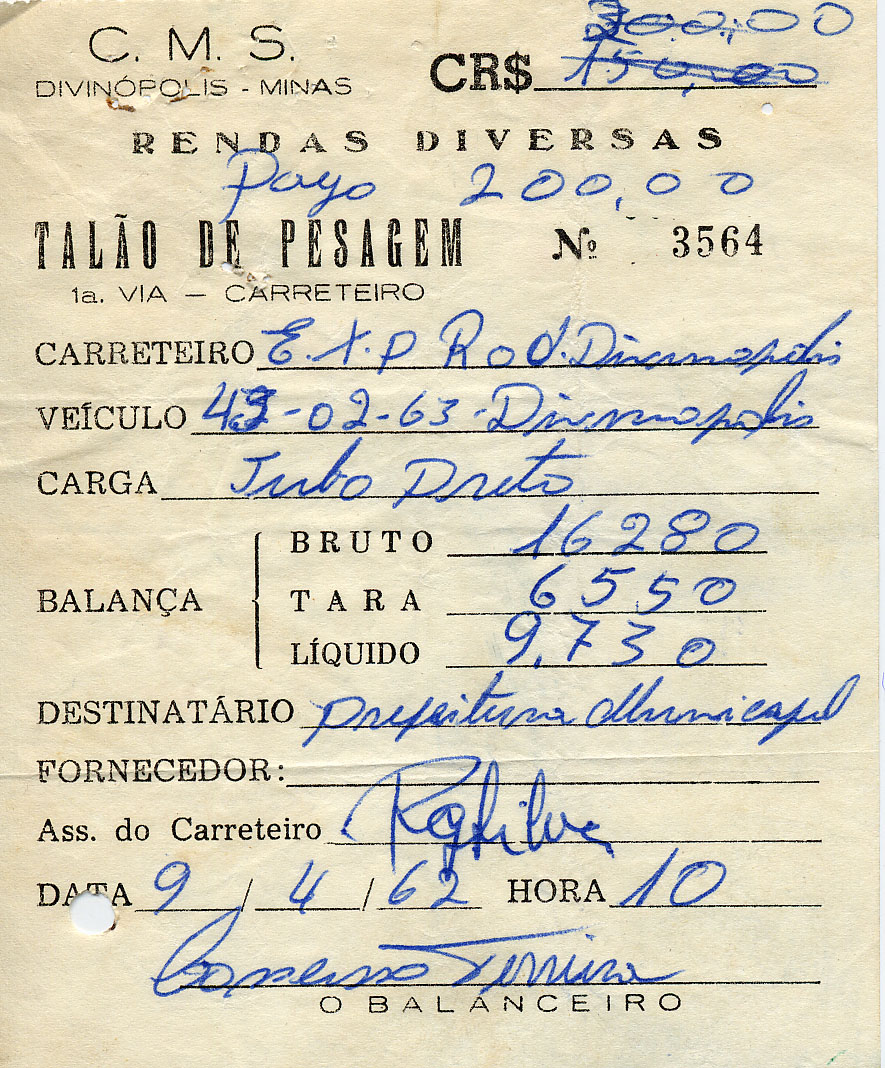 C. M. S. 200,00
DIVINÓPOLIS - MINAS CR$ 150,00
RENDAS DIVERSAS
Pago 200,00
TALÃO DE PESAGEM Nº 3564
1a. VIA — CARRETEIRO
CARRETEIRO E.x.p Rod. Divinopolis
VEÍCULO 43-02-63 - Divinopolis
CARGA Tubo Preto
BRUTO 16280
BALANÇA TARA 6550
LÍQUIDO 9,730
DESTINATÁRIO Prefeitura Municapl
FORNECEDOR:
Ass. do Carreteiro
DATA 9 / 4 / 62 HORA 10
Ferreira
O BALANCEIRO